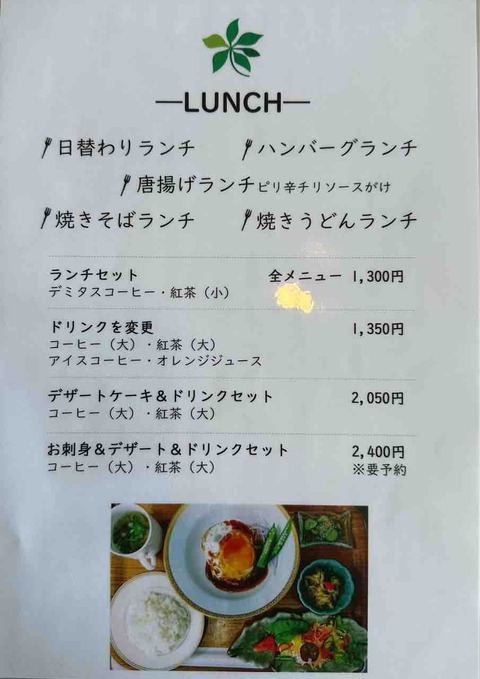 LUNCH
日替わりランチ ハンバーグランチ
唐揚げランチピリ辛チリソースがけ
焼きそばランチ 焼きうどんランチ
ランチセット 全メニュー 1,300円
デミタスコーヒー・紅茶（小）
ドリンクを変更 1,350円
コーヒー（大）・紅茶（大）
アイスコーヒー・オレンジジュース
デザートケーキ＆ドリンクセット 2,050円
コーヒー（大）・紅茶（大）
お刺身＆デザート＆ドリンクセット 2,400円
コーヒー（大）・紅茶（大） ※要予約